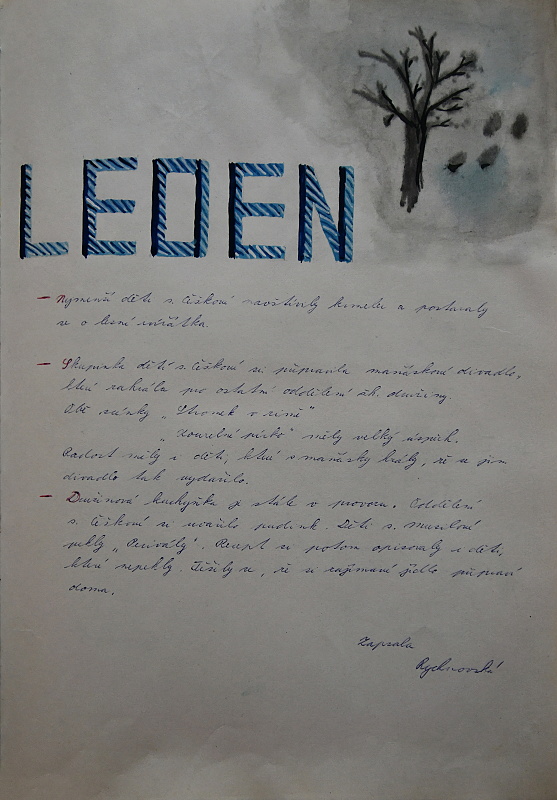 LEDEN
– Nejmenší děti s. Čiškové navštívily krmelec a postaraly
se o lesní zvířátka.
– Skupinka dětí s. Čiškové si připravila maňáskové divadlo,
které zahrála pro ostatní oddělení šk. družiny.
Obě scénky „Stromek v zimě"
„Kouzelné pírko" měly velký úspěch.
Radost měly i děti, které s maňásky hrály, že se jim
divadlo tak vydařilo.
– Družinová kuchyňka je stále v provozu. Oddělení
s. Čiškové si uvařilo pudink. Děti s. Musilové
pekly „". Recept si potom opisovaly i děti,
které nepekly. Těšily se, že si zajímavé jídlo připraví
doma.
Zapsala
Rychnovská